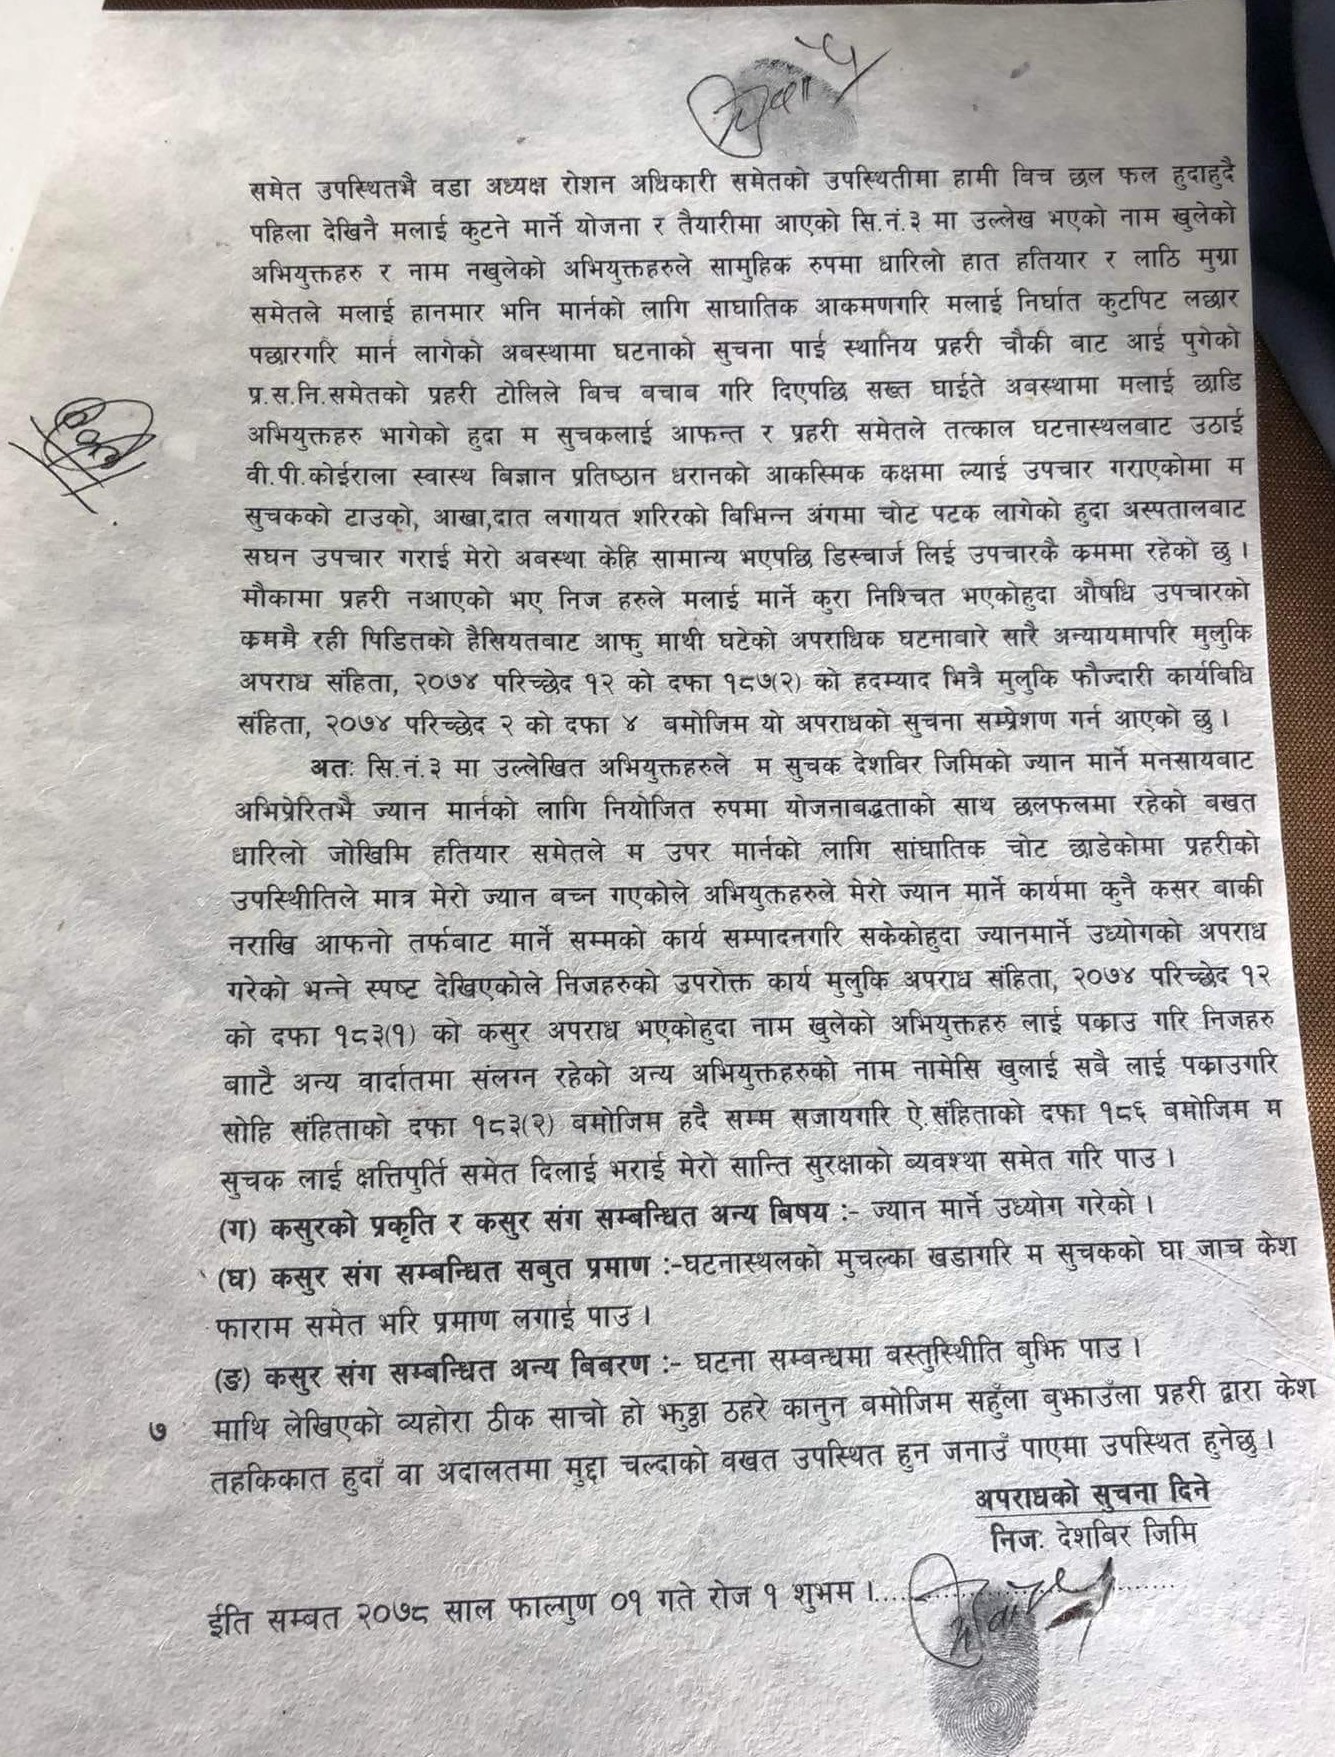 समेत उपस्थितभै वडा अध्यक्ष रोशन अधिकारी समेतको उपस्थितीमा हामी विच छल फल हुदाहुदै
पहिला देखिनै मलाई कुटने मार्ने योजना र तैयारीमा आएको सि.नं.३ मा उल्लेख भएको नाम खुलेको
अभियुक्तहरु र नाम नखुलेको अभियुक्तहरुले सामुहिक रुपमा धारिलो हात हतियार र लाठि मुग्रा
समेतले मलाई हानमार भनि मार्नको लागि साघातिक आकमणगरि मलाई निर्घात कुटपिट लछार
पछारगरि मार्न लागेको अबस्थामा घटनाको सुचना पाई स्थानिय प्रहरी चौकी बाट आई पुगेको
प्र.स.नि.समेतको प्रहरी टोलिले बिच बचाब गरि दिएपछि सख्त घाईते अबस्थामा मलाई छाडि
अभियुक्तहरु भागेको हुदा म सुचकलाई आफन्त र प्रहरी समेतले तत्काल घटनास्थलबाट उठाई
वी.पी.कोईराला स्वास्थ बिज्ञान प्रतिष्ठान धरानको आकस्मिक कक्षमा ल्याई उपचार गराएकोमा म
सुचकको टाउको, आखा,दात लगायत शरिरको बिभिन्न अंगमा चोट पटक लागेको हुदा अस्पतालबाट
सघन उपचार गराई मेरो अबस्था केहि सामान्य भएपछि डिस्चार्ज लिई उपचारकै कममा रहेको छु ।
मौकामा प्रहरी नआएको भए निज हरुले मलाई मार्ने कुरा निश्चित भएकोहुदा औषधि उपचारको
कममै रही पिडितको हैसियतबाट आफु माथी घटेको अपराधिक घटनाबारे सारै अन्यायमापरि मुलुकि
अपराध संहिता, २०७४ परिच्छेद १२ को दफा १८७(२) को हदम्याद भित्रै मुलुकि फौज्दारी कार्यबिधि
संहिता, २०७४ परिच्छेद २ को दफा ४ बमोजिम यो अपराधको सुचना सम्प्रेशण गर्न आएको छु ।
अतः सि.नं.३ मा उल्लेखित अभियुक्तहरुले म सुचक देशबिर जिमिको ज्यान मार्ने मनसायबाट
अभिप्रेरितभै ज्यान मार्नको लागि नियोजित रुपमा योजनाबद्धताको साथ छलफलमा रहेको बखत
धारिलो जोखिमि हतियार समेतले म उपर मार्नको लागि सांघातिक चोट छाडेकोमा प्रहरीको
उपस्थिीतिले मात्र मेरो ज्यान बच्न गएकोले अभियुक्तहरुले मेरो ज्यान मार्ने कार्यमा कुनै कसर बाकी
नराखि आफनो तर्फबाट मार्ने सम्मको कार्य सम्पादनगरि सकेकोहुदा ज्यानमार्ने उध्योगको अपराध
गरेको भन्ने स्पष्ट देखिएकोले निजहरुको उपरोक्त कार्य मुलुकि अपराध संहिता, २०७४ परिच्छेद १२
को दफा १८३(१) को कसुर अपराध भएकोहुदा नाम खुलेको अभियुक्तहरु लाई पकाउ गरि निजहरु
बााटै अन्य वार्दातमा संलग्न रहेको अन्य अभियुक्तहरुको नाम नामेसि खुलाई सबै लाई पकाउगरि
सोहि संहिताको दफा १८३(२) बमोजिम हदै सम्म सजायगरि ऐ.संहिताको दफा १८६ बमोजिम म
सुचक लाई क्षत्तिपुर्ति समेत दिलाई भराई मेरो सान्ति सुरक्षाको व्यवश्था समेत गरि पाउ ।
(ग) कसुरको प्रकृति र कसुर संग सम्बन्धित अन्य बिषय :- ज्यान मार्ने उध्योग गरेको ।
(घ) कसुर संग सम्बन्धित सबुत प्रमाण :-घटनास्थलको मुचल्का खडागरि म सुचकको घा जाच केश
फाराम समेत भरि प्रमाण लगाई पाउ ।
(ङ) कसुर संग सम्बन्धित अन्य बिबरण :- घटना सम्बन्धमा बस्तुस्थिीति बुझि पाउ ।
७ माथि लेखिएको व्यहोरा ठीक साचो हो झुठ्ठा ठहरे कानुन बमोजिम सहुँला बुझाउँला प्रहरी द्वारा केश
तहकिकात हुदाँ वा अदालतमा मुद्दा चल्दाको वखत उपस्थित हुन जनाउँ पाएमा उपस्थित हुनेछु ।
अपराधको सुचना दिने
निजः देशबिर जिमि
ईति सम्बत २०७८ साल फाल्गुण ०१ गते रोज १ शुभम ।....